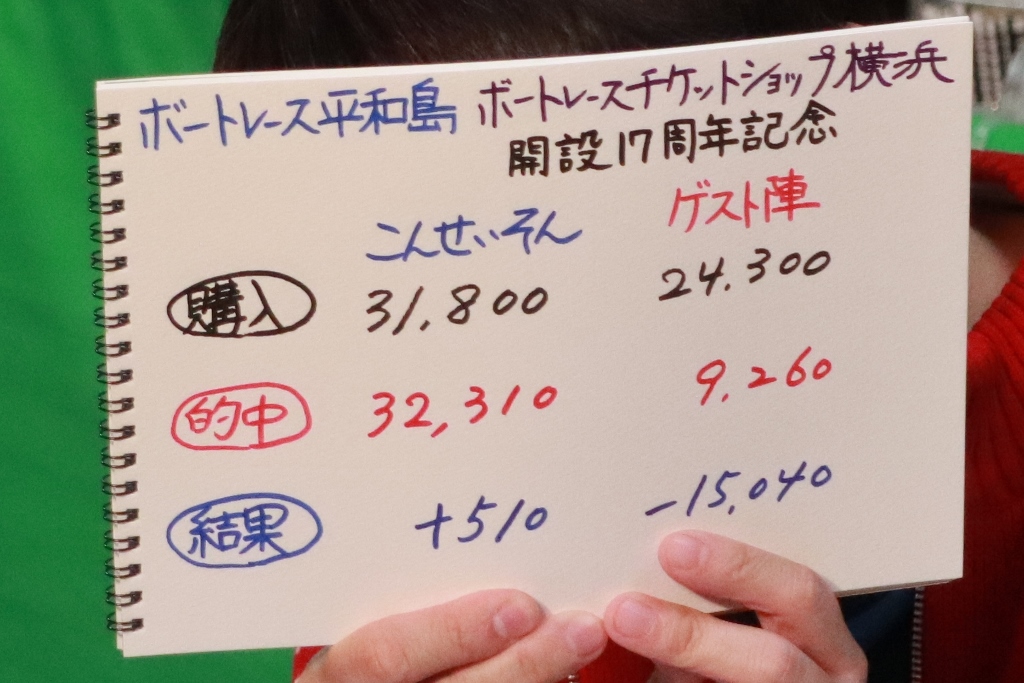 ボートレース平和島 ボートレースチケットショップ横浜
開設17周年記念
こんせいそん ゲスト陣
購入 31,800 24,300
的中 32,310 9,260
結果 +510 -15,040